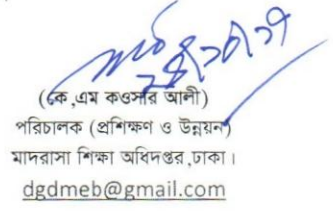 ২৪/১০/১৭
(কে,এম কওসার আলী)
পরিচালক (প্রশিক্ষণ ও উন্নয়ন)
মাদরাসা শিক্ষা অধিদপ্তর,ঢাকা।
dgdmeb@gmail.com